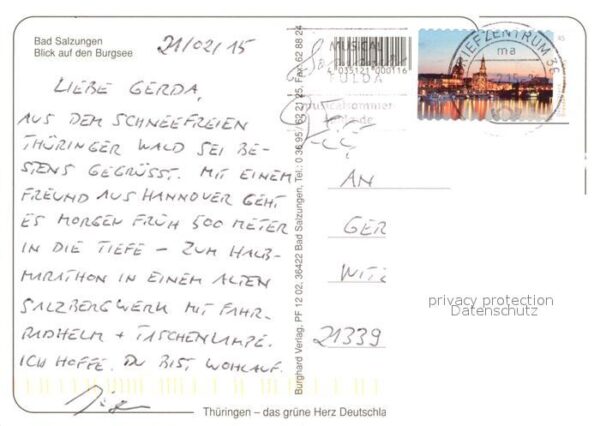 Bad Salzungen
Blick auf den Burgsee
21/02/15
LIEBE GERDA,
AUS DEM SCHNEEFREIEN
THÜRINGER WALD SEI BE-
STENS GEGRÜSST. MIT EINEM
FREUND AUS HANNOVER GEHT
ES MORGEN FRÜH 500 METER
IN DIE TIEFE – ZUM HALB-
MARATHON IN EINEM ALTEN
SALZBERGWERK MIT FAHR-
RADHELM + TASCHENLAMPE.
ICH HOFFE, DU BIST WOHLAUF.
Thüringen – das grüne Herz Deutschla
Burghard Verlag, PF 12 02, 36422 Bad Salzungen, Tel.: 0 36 95 / 62 21 25, Fax 62 88 24
4 035121 000116
MUSICAL
FULDA
musicalsommer
BRIEFZENTRUM 36
ma
45
AN
GER
WITZ
21339
privacy protection
Datenschutz